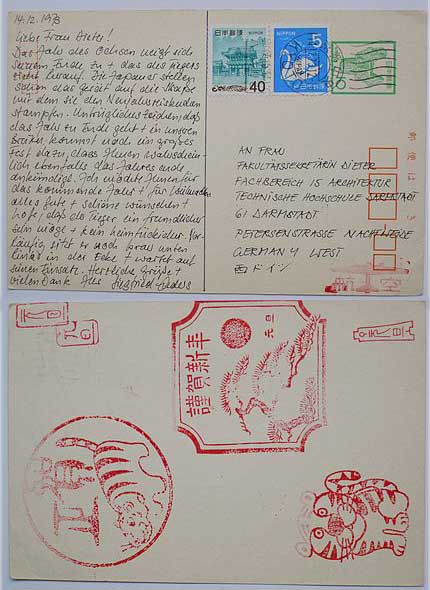 14.12.1973
Liebe Frau Dieter!
Das Jahr des Ochsen neigt sich
seinem Ende zu + das des Tigers
steht herauf. Die Japaner stellen
schon das Gerät auf die Straße
mit dem sie den Neujahrsreiskuchen
stampfen. Untrügliches Zeichen, daß
das Jahr zu Ende geht + in unseren
Breiten kommt noch ein großes
Fest dazu, das Ihnen wahrschein-
lich ebenfalls das Jahresende
ankündigt. Ich möchte Ihnen für
das kommende Jahr + für Weihnachten
alles gute + schöne wünschen +
hoffe, daß der Tiger ein freundlicher
sein möge + kein heimtückischer. Vor-
läufig sitzt er noch brav unten
links in der Ecke + wartet auf
seinen Einsatz. Herzliche Grüße +
vielen Dank Ihr Siegfried
日本郵便
40
5
日本郵便
郵便はがき
AN FRAU
FAKULTÄTSSEKRETÄRIN DIETER
FACHBEREICH 15 ARCHITEKTUR
TECHNISCHE HOCHSCHULE DARMSTADT
61 DARMSTADT
PETERSENSTRASSE
GERMANY WEST
西ドイツ
謹賀新年
元旦
賀正